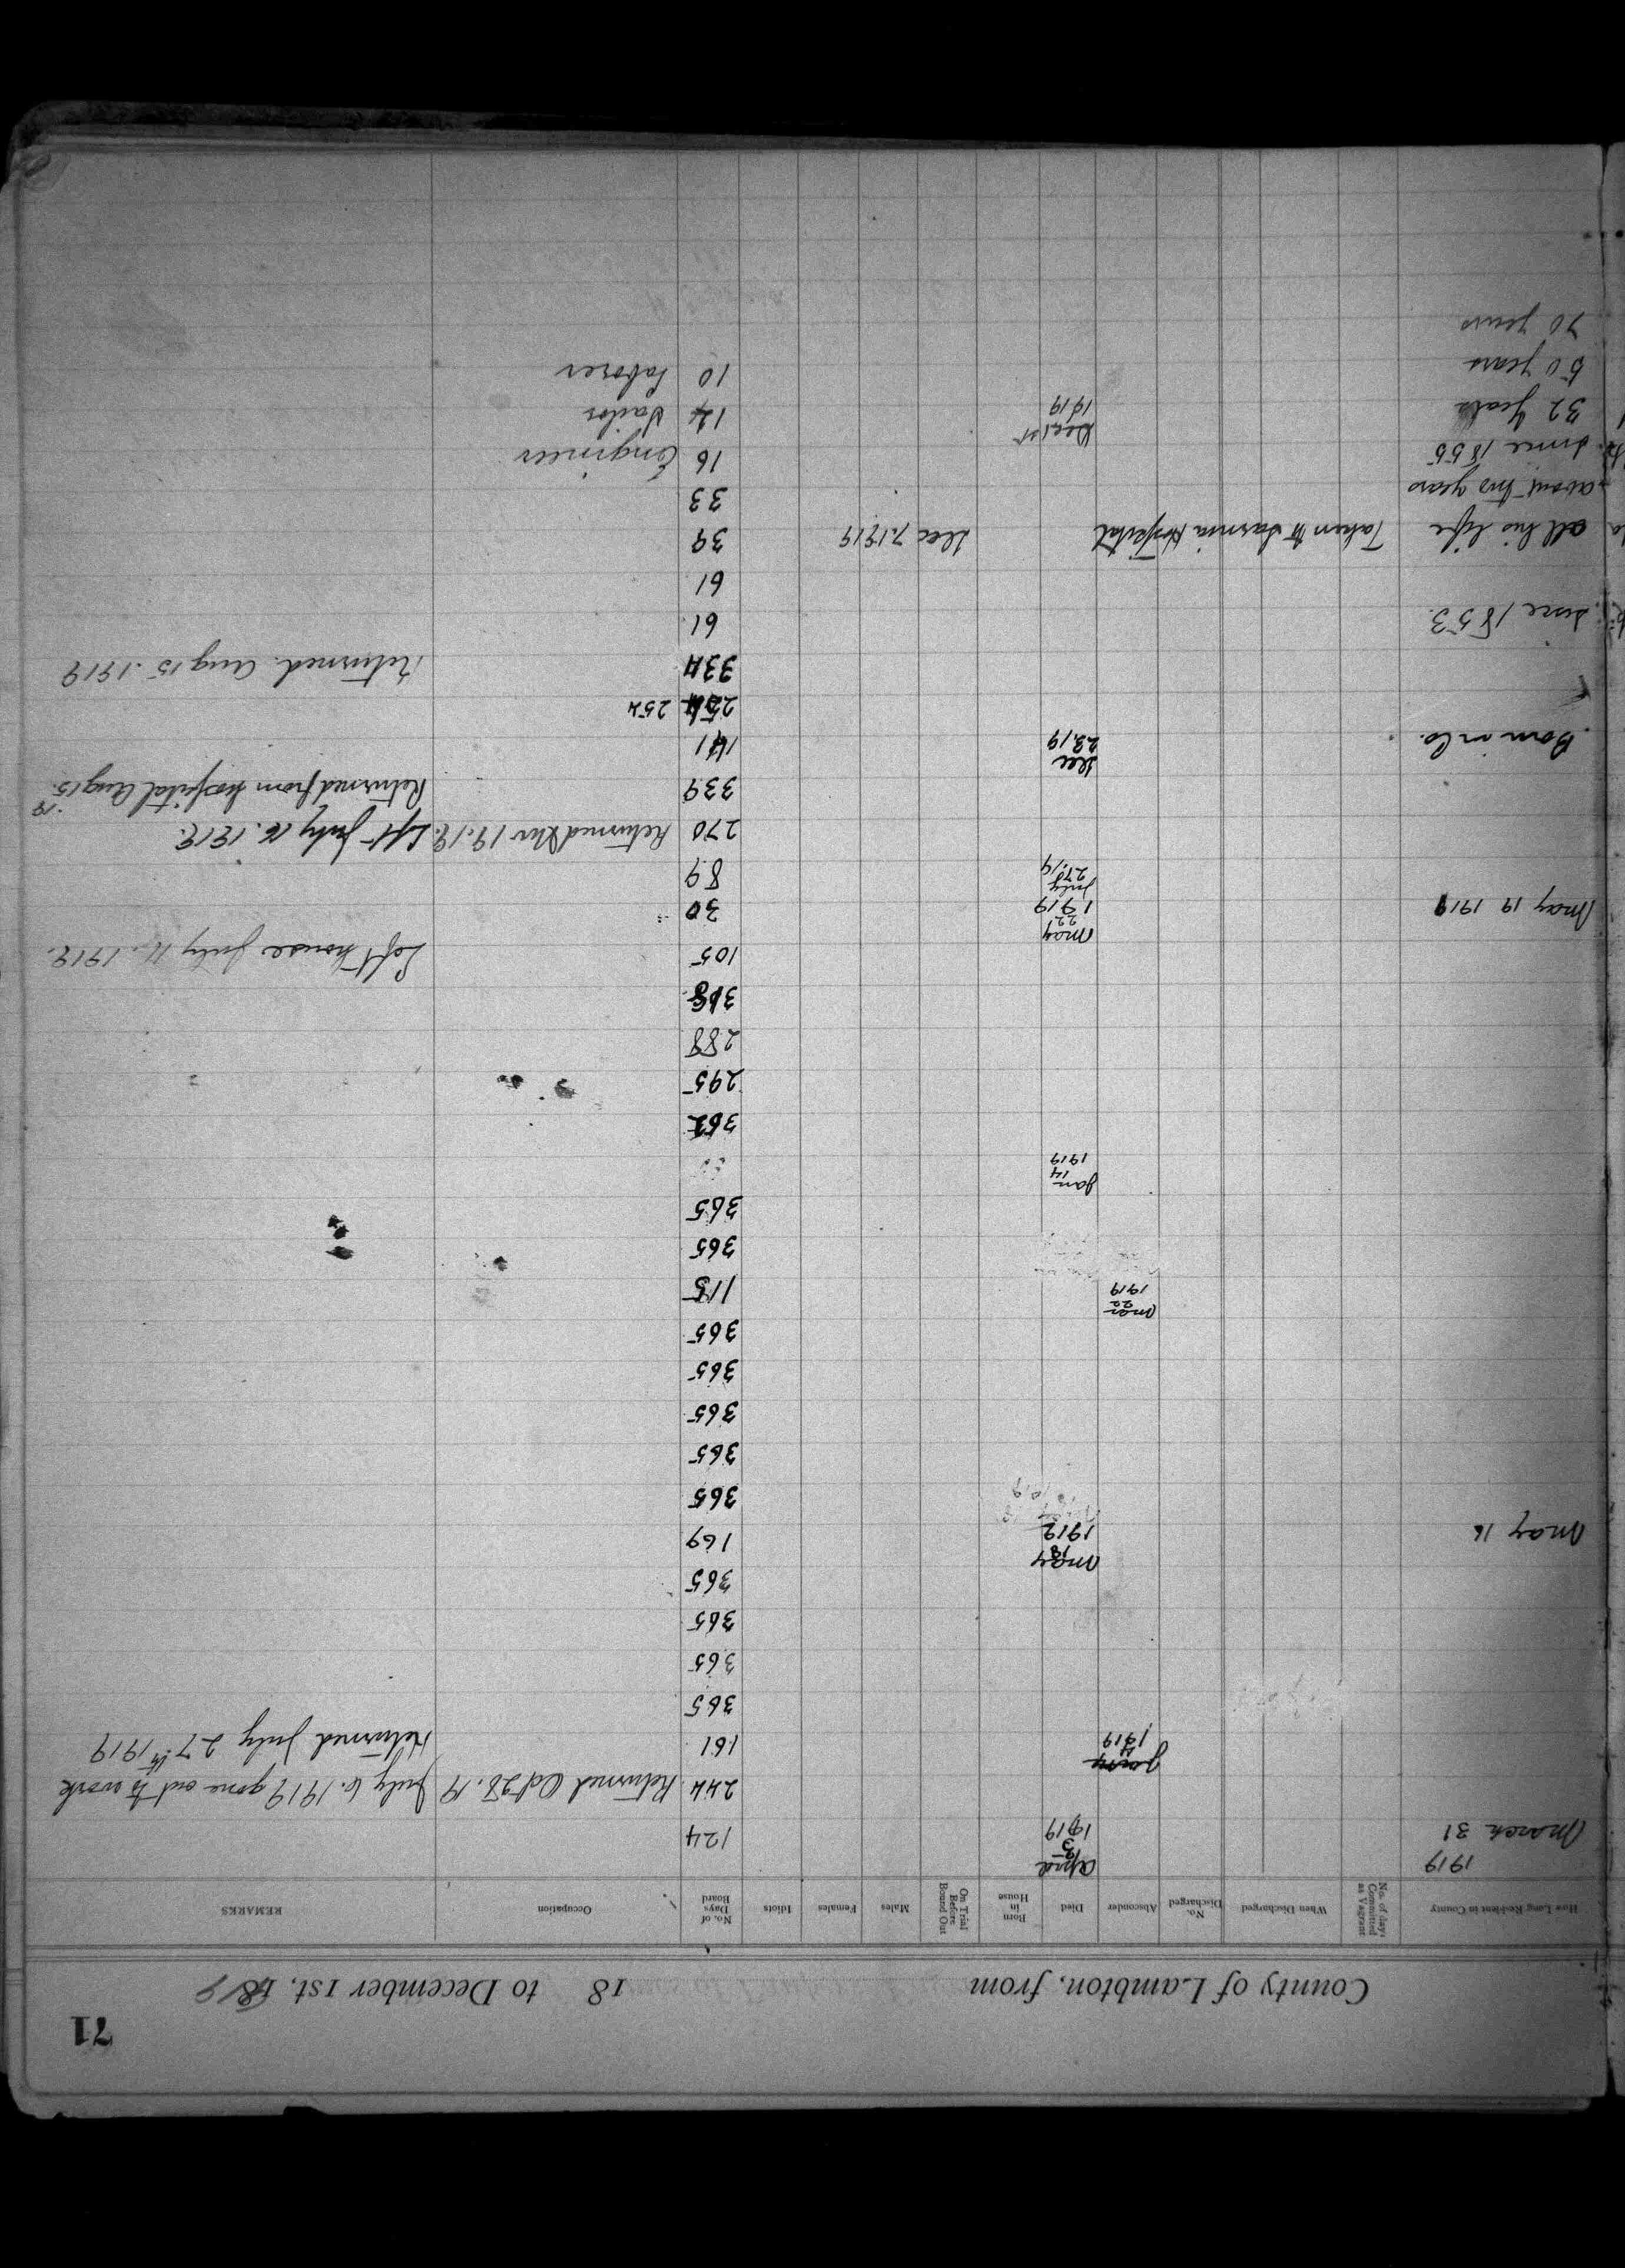 71
County of Lambton, from 18 to December 1st, 1819
How Long Resident in County | No. of days Committed as Vagrant | When Discharged | No. Discharged | Absconder | Died | Born in House | On Trial Before Bound Out | Males | Females | Idiots | No. of Days Board | Occupation | REMARKS
1919 March 31 | April 3 1919 | 124
244 | Returned Oct 28.19 | July 6. 1919 gone out to work
1919 | 161 | Returned July 27th 1919
365
365
365
365
May 16 | May 18 1919 | 169
365
365
365
365
365
Mar 22 1919 | 115
365
365
Jan 14 1919
362
295
288
318
105 | Left house July 11. 1919.
May 19 1919 | May 22 1919 | 30
July 27,19 | 89
270 | Returned Nov 19.19. | Left July 16. 1919.
339 | Returned from Hospital Aug 15. 19
Born in Co. | Dec 23,19 | 141
254 | 254
334 | Returned. Aug 15. 1919
since 1853. | 61
61
all his life | Taken to Sarnia Hospital | Dec 7.1919 | 39
about two years | 33
since 1855 | 16 | Engineer
32 years | Dec 1st 1919 | 14 | Sailor
50 years | 10 | Laborer
70 years